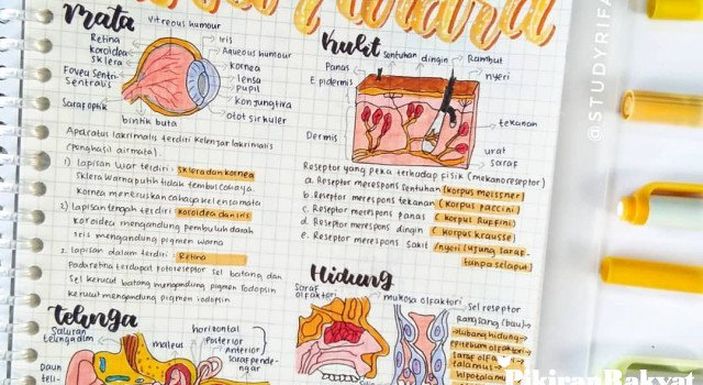 Mata
Vitreous humour
Retina
koroidea
sklera
Fovea Sentri-
Sentralis
Saraf optik
bintik buta
Iris
Aqueous humour
kornea
lensa
pupil
konjungtiva
otot sirkuler
Aparatus lakrimalis terdiri kelenjar lakrimalis
(penghasil airmata)
1) Lapisan luar terdiri : sklera dan kornea
sklera warna putih tidak tembus cahaya
kornea meneruskan cahaya ke lensa mata
2) Lapisan tengah terdiri : koroidea dan iris
koroidea mengandung pembuluh darah
iris mengandung pigmen warna
2. Lapisan dalam terdiri : Retina
Pada retina terdapat fotoreseptor sel batang dan
sel kerucut batang mengandung pigmen rodopsin
kerucut mengandung pigmen iodopsin
kulit
Panas
Sentuhan
dingin
Rambut
nyeri
Epidermis
tekanan
Dermis
urat
saraf
Reseptor yang peka terhadap fisik (mekanoreseptor)
a. Reseptor merespons sentuhan (korpus meissner)
b. Reseptor merespons tekanan (korpus paccini)
c. Reseptor merespons panas (korpus Ruffini)
d. Reseptor merespons dingin (korpus krausse)
e. Reseptor merespons sakit /nyeri (ujung saraf
tanpa selaput)
Hidung
saraf
olfaktori
mukosa olfaktori
sel reseptor
Rangsang (bau)
lubang hidung
epitelium olfaktori
saraf olfa
talamus
hipotalamus
telinga
Saluran
telinga dlm
Daun
teli-
maleus
horizontal
Posterior
Anterior
saraf pende-
ngar
@STUDYRIFA
PikiranRakyat